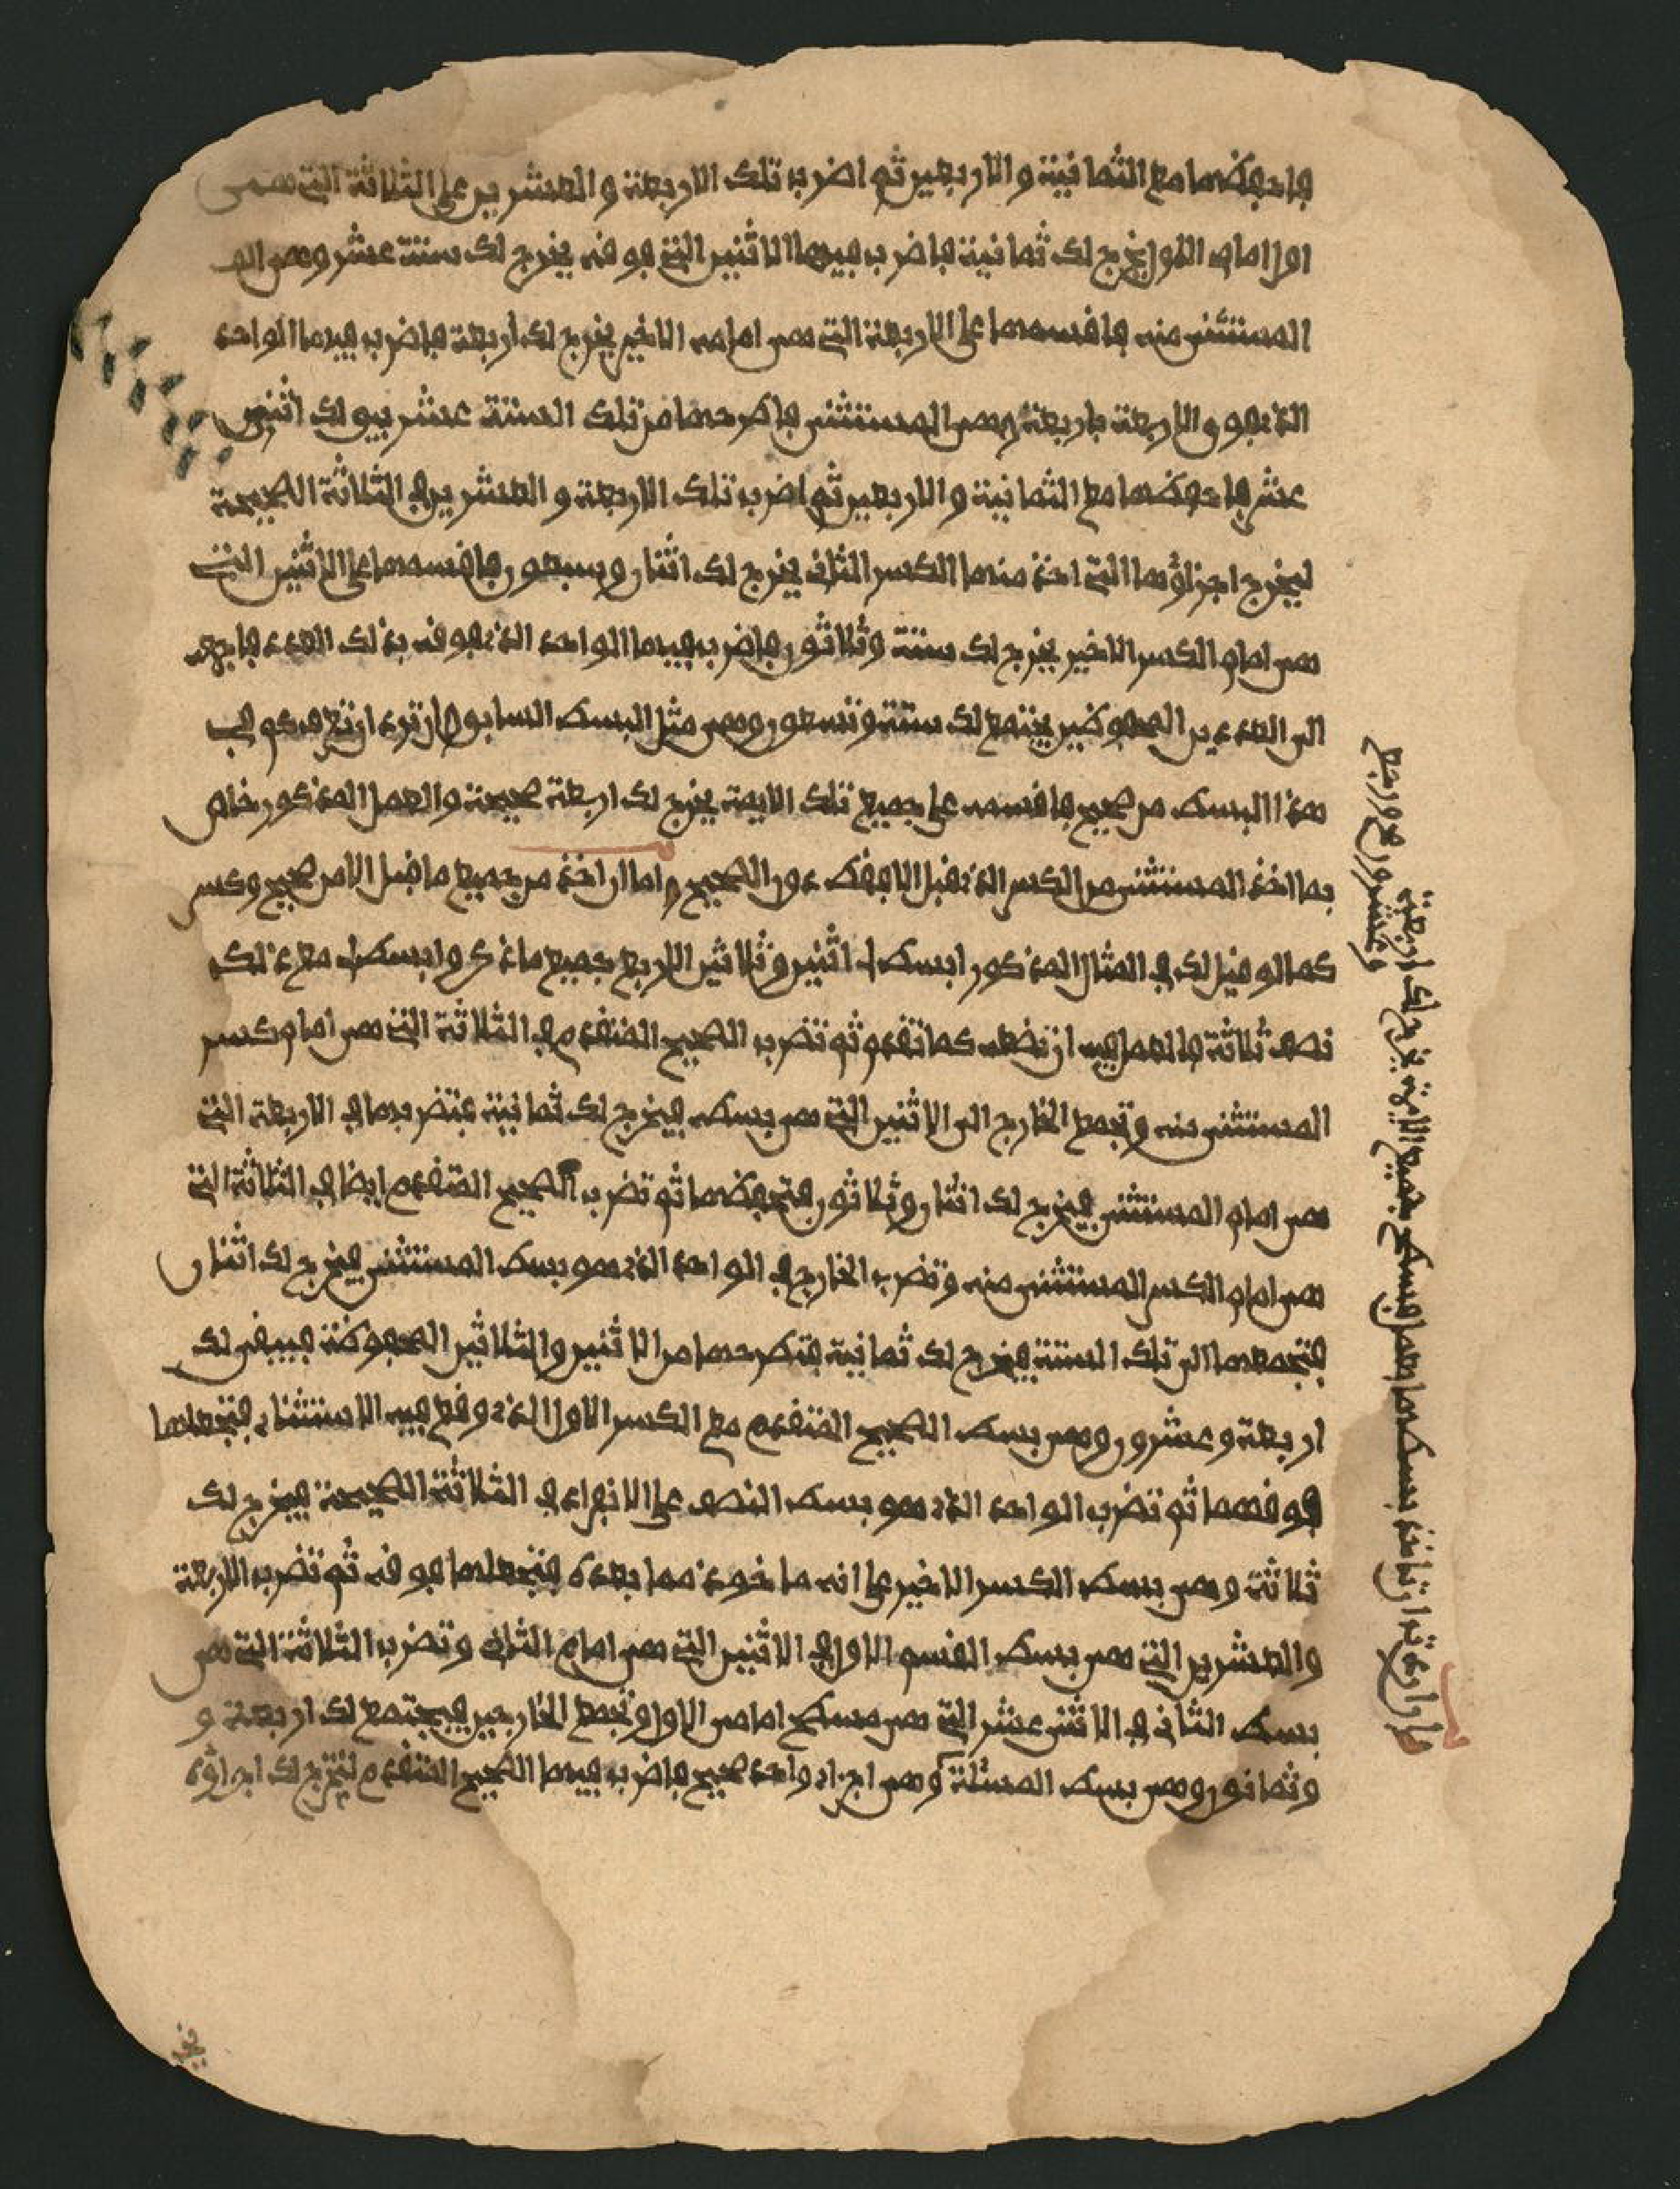 فاحفظها مع الثمانية والاربعين ثم اضرب تلك الاربعة والعشرين على الثلاثة التي هي
اول امام الاول يخرج لك ثمانية فاضرب فيها الاثنين التي فوقه يخرج لك ستة عشر وهي
المستثنى منه فاقسمها على الاربعة التي هي امام الاخير يخرج لك اربعة فاضرب فيها الواحد
الذي فوق الاربعة باربعة وهي المستثنى فاطرحها من تلك الستة عشر يبق لك اثنى
عشر فاحفظها مع الثمانية والاربعين ثم اضرب تلك الاربعة والعشرين في الثلاثة الصحيحة
ليخرج اجزاؤها التي اخذ منها الكسر الثاني يخرج لك اثنان وسبعون فاقسمها على الاثنين التي
هي امام الكسر الاخير يخرج لك ستة وثلاثون فاضرب فيها الواحد الذي فوقه بذلك العدد فاجمعه
الى العددين المحفوظين يجتمع لك ستة وتسعون وهي مثل البسط السابق وان ترد ان تعرف كم في
هذا البسط من صحيح فاقسمه على جميع تلك الايمة يخرج لك اربعة صحيحة والعمل المذكور خاص
بما اخذ المستثنى من الكسر الذي قبل الا فقط دون الصحيح واما ان اخذ من جميع ما قبل الا من صحيح وكسر
كما لو قيل لك في المثال المذكور ابسط اثنين وثلاثين الا ربع جميع ما ذكر وابسط مع ذلك
نصف ثلاثة فالعمل فيه ان تضع كما تقدم ثم تضرب الصحيح المتقدم في الثلاثة التي هي امام كسر
المستثنى منه وتجمع الخارج الى الاثنين التي هي بسطه فيخرج لك ثمانية فتضربها في الاربعة التي
هي امام المستثنى فيخرج لك اثنان وثلاثون فتحفظها ثم تضرب الصحيح المتقدم ايضا في الثلاثة التي
هي امام الكسر المستثنى منه وتضرب الخارج في الواحد الذي هو بسط المستثنى فيخرج لك اثنان
فتجمعها الى تلك الستة فيخرج لك ثمانية فتطرحها من الاثنين والثلاثين المحفوظة فيبقى لك
اربعة وعشرون وهي بسط الصحيح المتقدم مع الكسر الاول الذي وقع فيه الاستثناء فتجعلها
فوقهما ثم تضرب الواحد الذي هو بسط النصف على الانفراد في الثلاثة الصحيحة فيخرج لك
ثلاثة وهي بسط الكسر الاخير على انه ماخوذ مما بعده فتجعلها فوقه ثم تضرب الاربعة
والعشرين التي هي بسط القسم الاول في الاثنين التي هي امام الثاني وتضرب الثلاثة التي هي
بسط الثاني في الاثنى عشر التي هي مسطح امامي الاول وتجمع الخارجين فيجتمع لك اربعة و
وثمانون وهي بسط المسئلة وهي اجزاء واحد صحيح فاضرب فيها الصحيح المتقدم لتخرج لك اجزاؤه
فان اردت ان تاخذ بسطها فاقسم جميع الايمة يخرج لك اربعة
وعشرون وربع
يخر